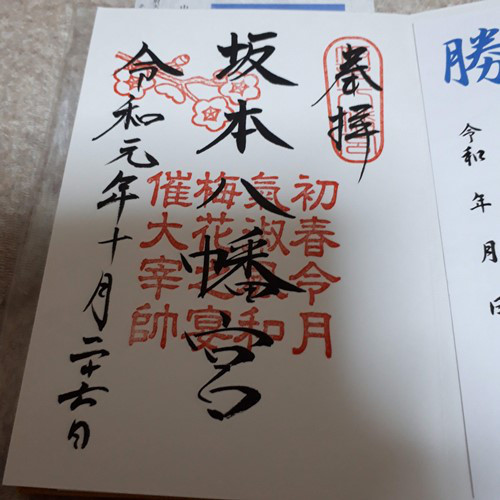 勝
令和 年 月 日
奉拝
坂本八幡宮
令和元年十月二十六日
初春令月
氣淑風和
梅花之宴
催大宰帥